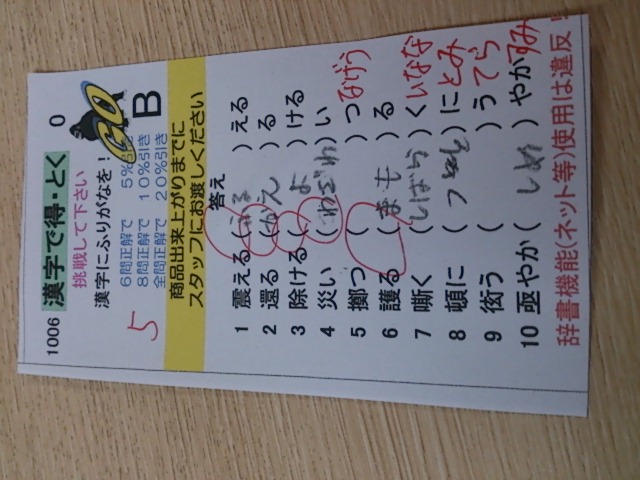 1006 漢字で得・とく 0
挑戦して下さい
漢字にふりがなを！
GO
B
6問正解で 5%引き
8問正解で 10%引き
全問正解で 20%引き
5
商品出来上がりまでに
スタッフにお渡しください
答え
1 震える(ふる)える
2 還る(かえ)る
3 除ける(よ)ける
4 災い(わざわ)い
5 擲つ( )つ なげう
6 護る(まも)る
7 嘶く(しばら)く いなな
8 頓に( )に とみ
9 衒う( )う てら
10 亟やか(しめ)やか すみ
辞書機能(ネット等)使用は違反！